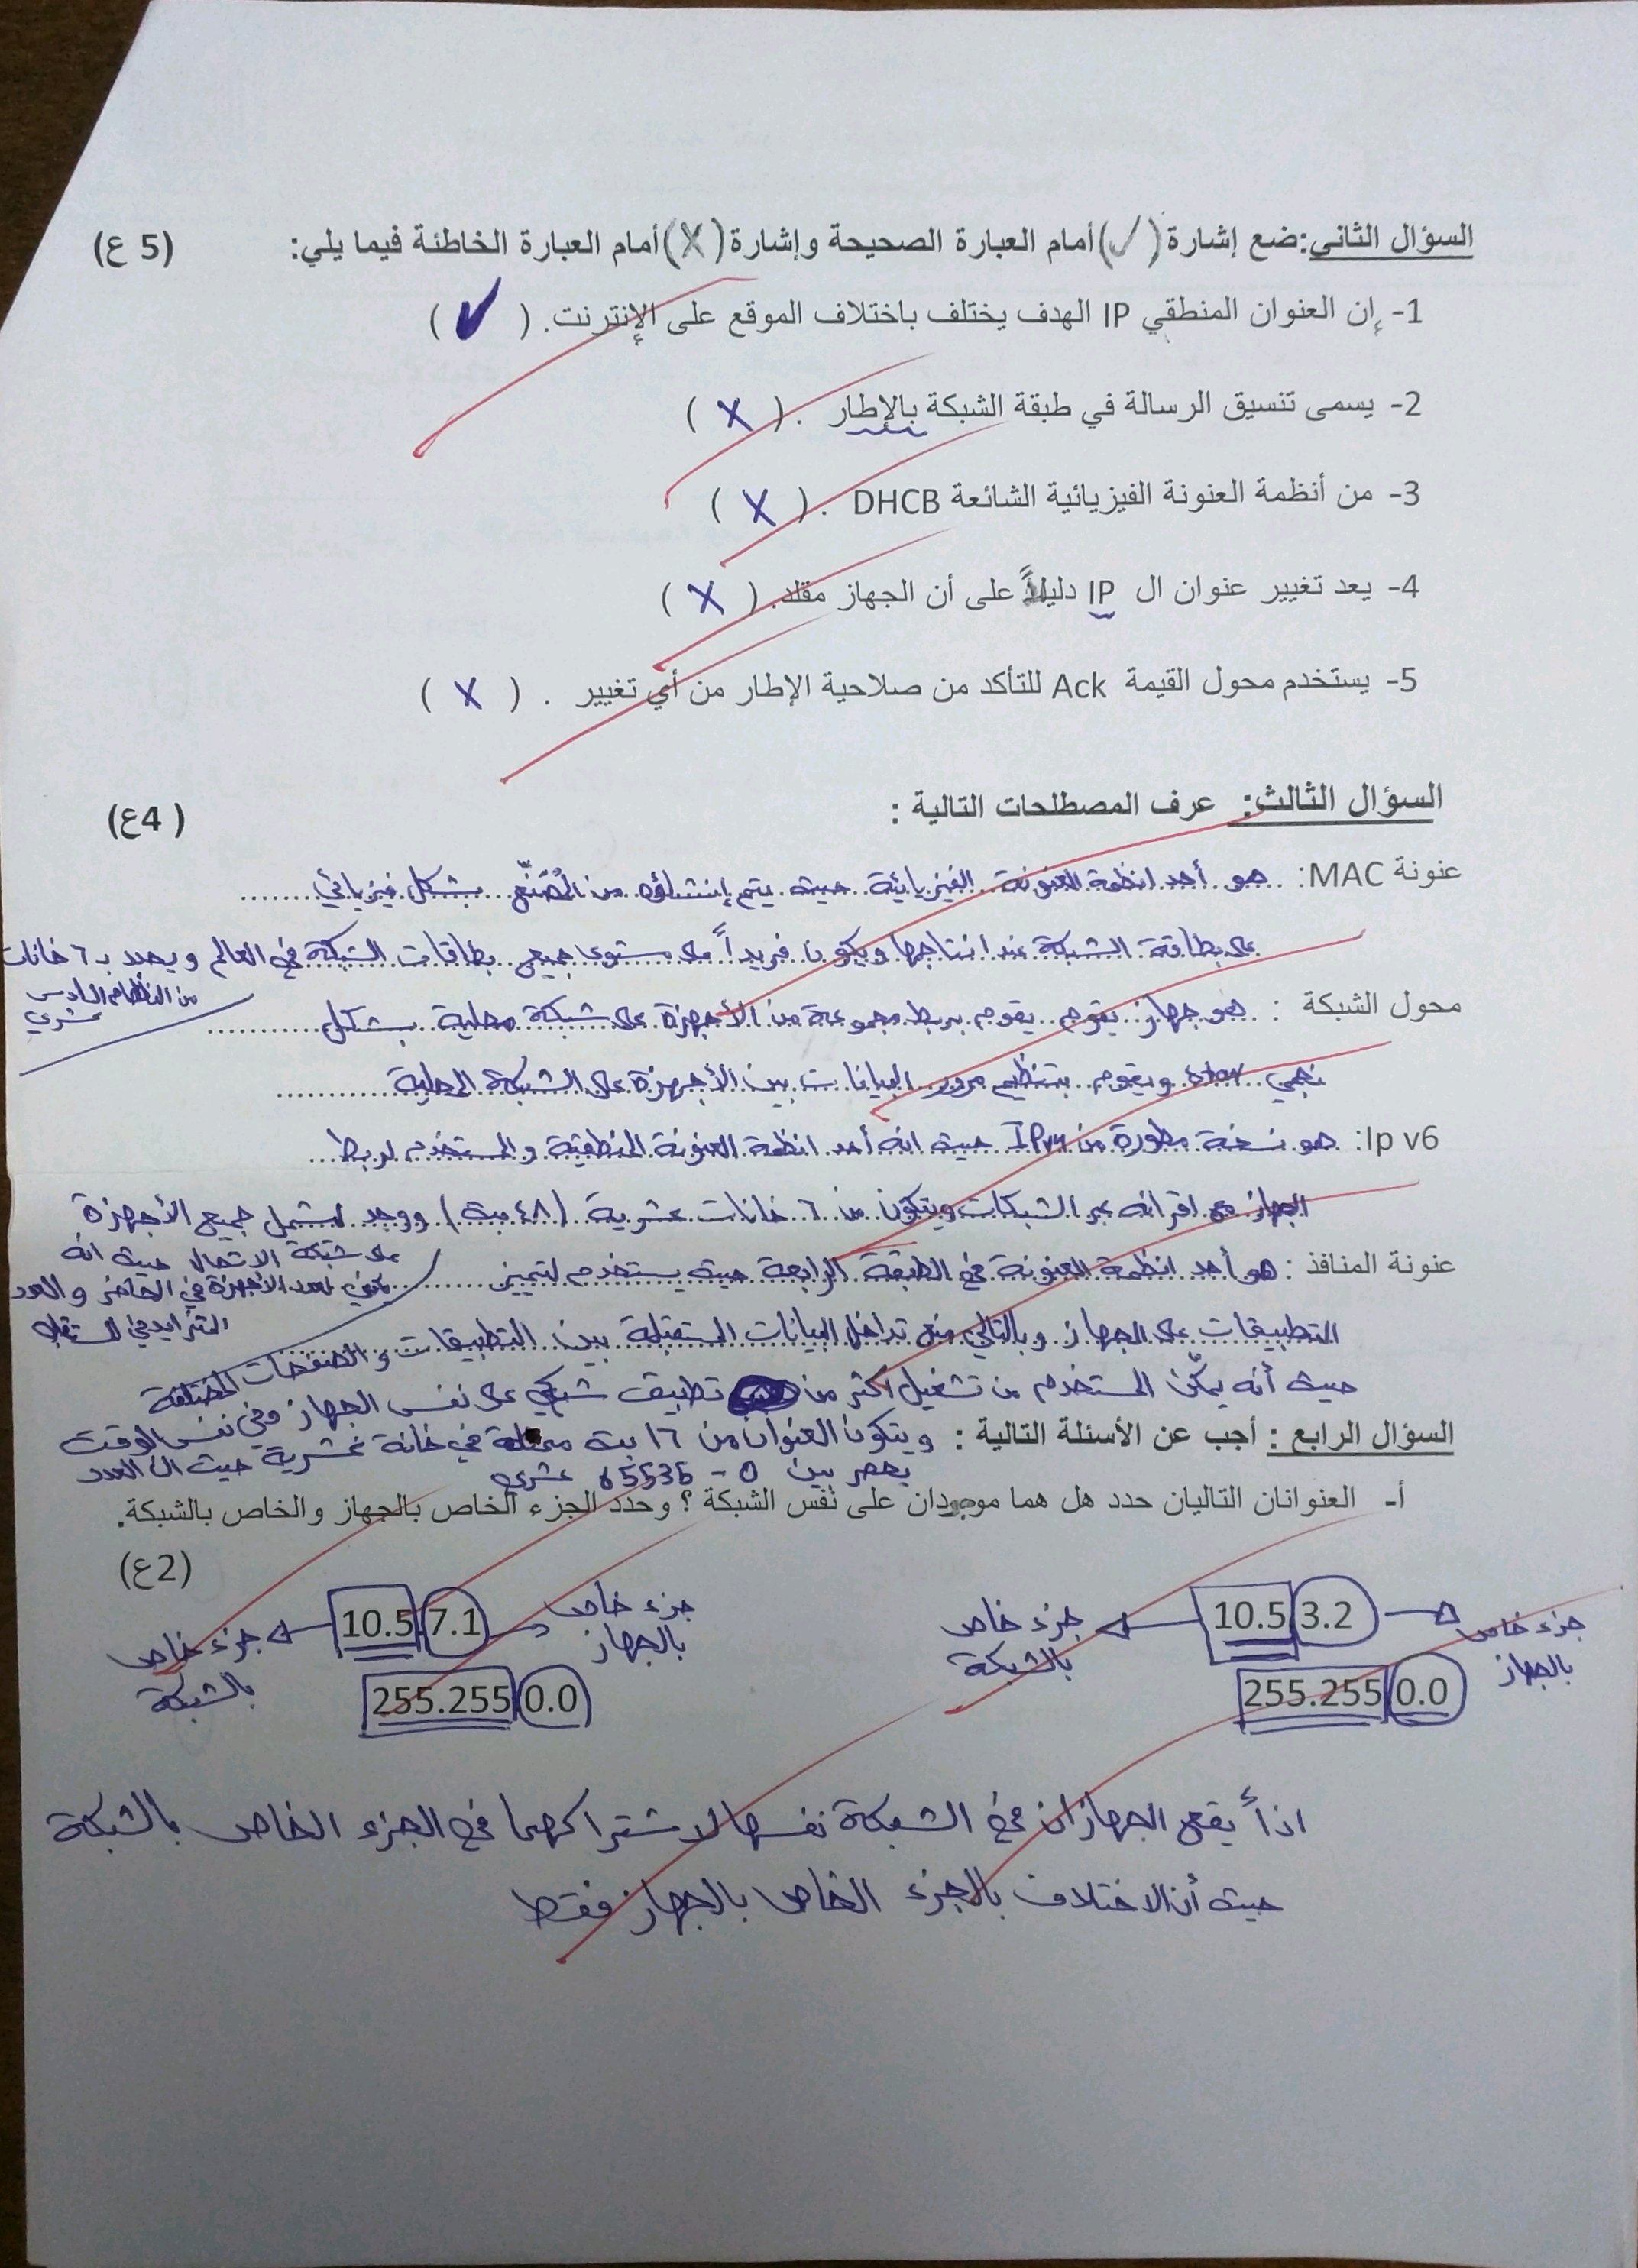 السؤال الثاني: ضع إشارة (✓) أمام العبارة الصحيحة وإشارة (X) أمام العبارة الخاطئة فيما يلي: (5 ع)
1- إن العنوان المنطقي IP الهدف يختلف باختلاف الموقع على الإنترنت. ( ✓ )
2- يسمى تنسيق الرسالة في طبقة الشبكة بالإطار . ( X )
3- من أنظمة العنونة الفيزيائية الشائعة DHCB . ( X )
4- يعد تغيير عنوان ال IP دليلاً على أن الجهاز مقلد. ( X )
5- يستخدم محول القيمة Ack للتأكد من صلاحية الإطار من أي تغيير . ( X )
السؤال الثالث: عرف المصطلحات التالية : (4ع)
عنونة MAC: هو أحد انظمة العنونة الفيزيائية حيث يتم إنشاؤه من المُصنّع بشكل فيزيائي
على بطاقة الشبكة عند انتاجها ويكون فريداً على مستوى جميع بطاقات الشبكة في العالم ويحدد بـ ٦ خانات
من النظام السادس عشري
محول الشبكة : هو جهاز يقوم يقوم بربط مجموعة من الأجهزة على شبكة محلية بشكل
نجمي star ويقوم بتنظيم مرور البيانات بين الأجهزة على الشبكة المحلية
Ip v6: هو نسخة مطورة من IPv4 حيث انه أحد انظمة العنونة المنطقية والمستخدم لربط
الجهاز مع اقرانه عبر الشبكات ويتكون من ٦ خانات عشرية (٤٨ بت) ووجد ليشمل جميع الأجهزة
على شبكة الاتصال حيث انه
يكفي لعدد الأجهزة في الحاضر والعدد
المتزايد في المستقبل
عنونة المنافذ : هو أحد انظمة العنونة في الطبقة الرابعة حيث يستخدم لتمييز
التطبيقات على الجهاز وبالتالي منع تداخل البيانات المستقبلة بين التطبيقات والصفحات المختلفة
حيث أنه يمكّن المستخدم من تشغيل اكثر من تطبيق شبكي على نفس الجهاز وفي نفس الوقت
السؤال الرابع : أجب عن الأسئلة التالية : ويتكون العنوان من ١٦ بت ممثلة في خانة عشرية حيث ان العدد
يحصر بين 0 - 65536 عشري
أ- العنوانان التاليان حدد هل هما موجودان على نفس الشبكة ؟ وحدد الجزء الخاص بالجهاز والخاص بالشبكة.
(2ع)
جزء خاص بالجهاز 10.5.3.2 جزء خاص بالشبكة
255.255.0.0
جزء خاص بالجهاز 10.5.7.1 جزء خاص بالشبكة
255.255.0.0
اذاً يقع الجهازان في الشبكة نفسها لاشتراكهما في الجزء الخاص بالشبكة
حيث أن الاختلاف بالجزء الخاص بالجهاز فقط